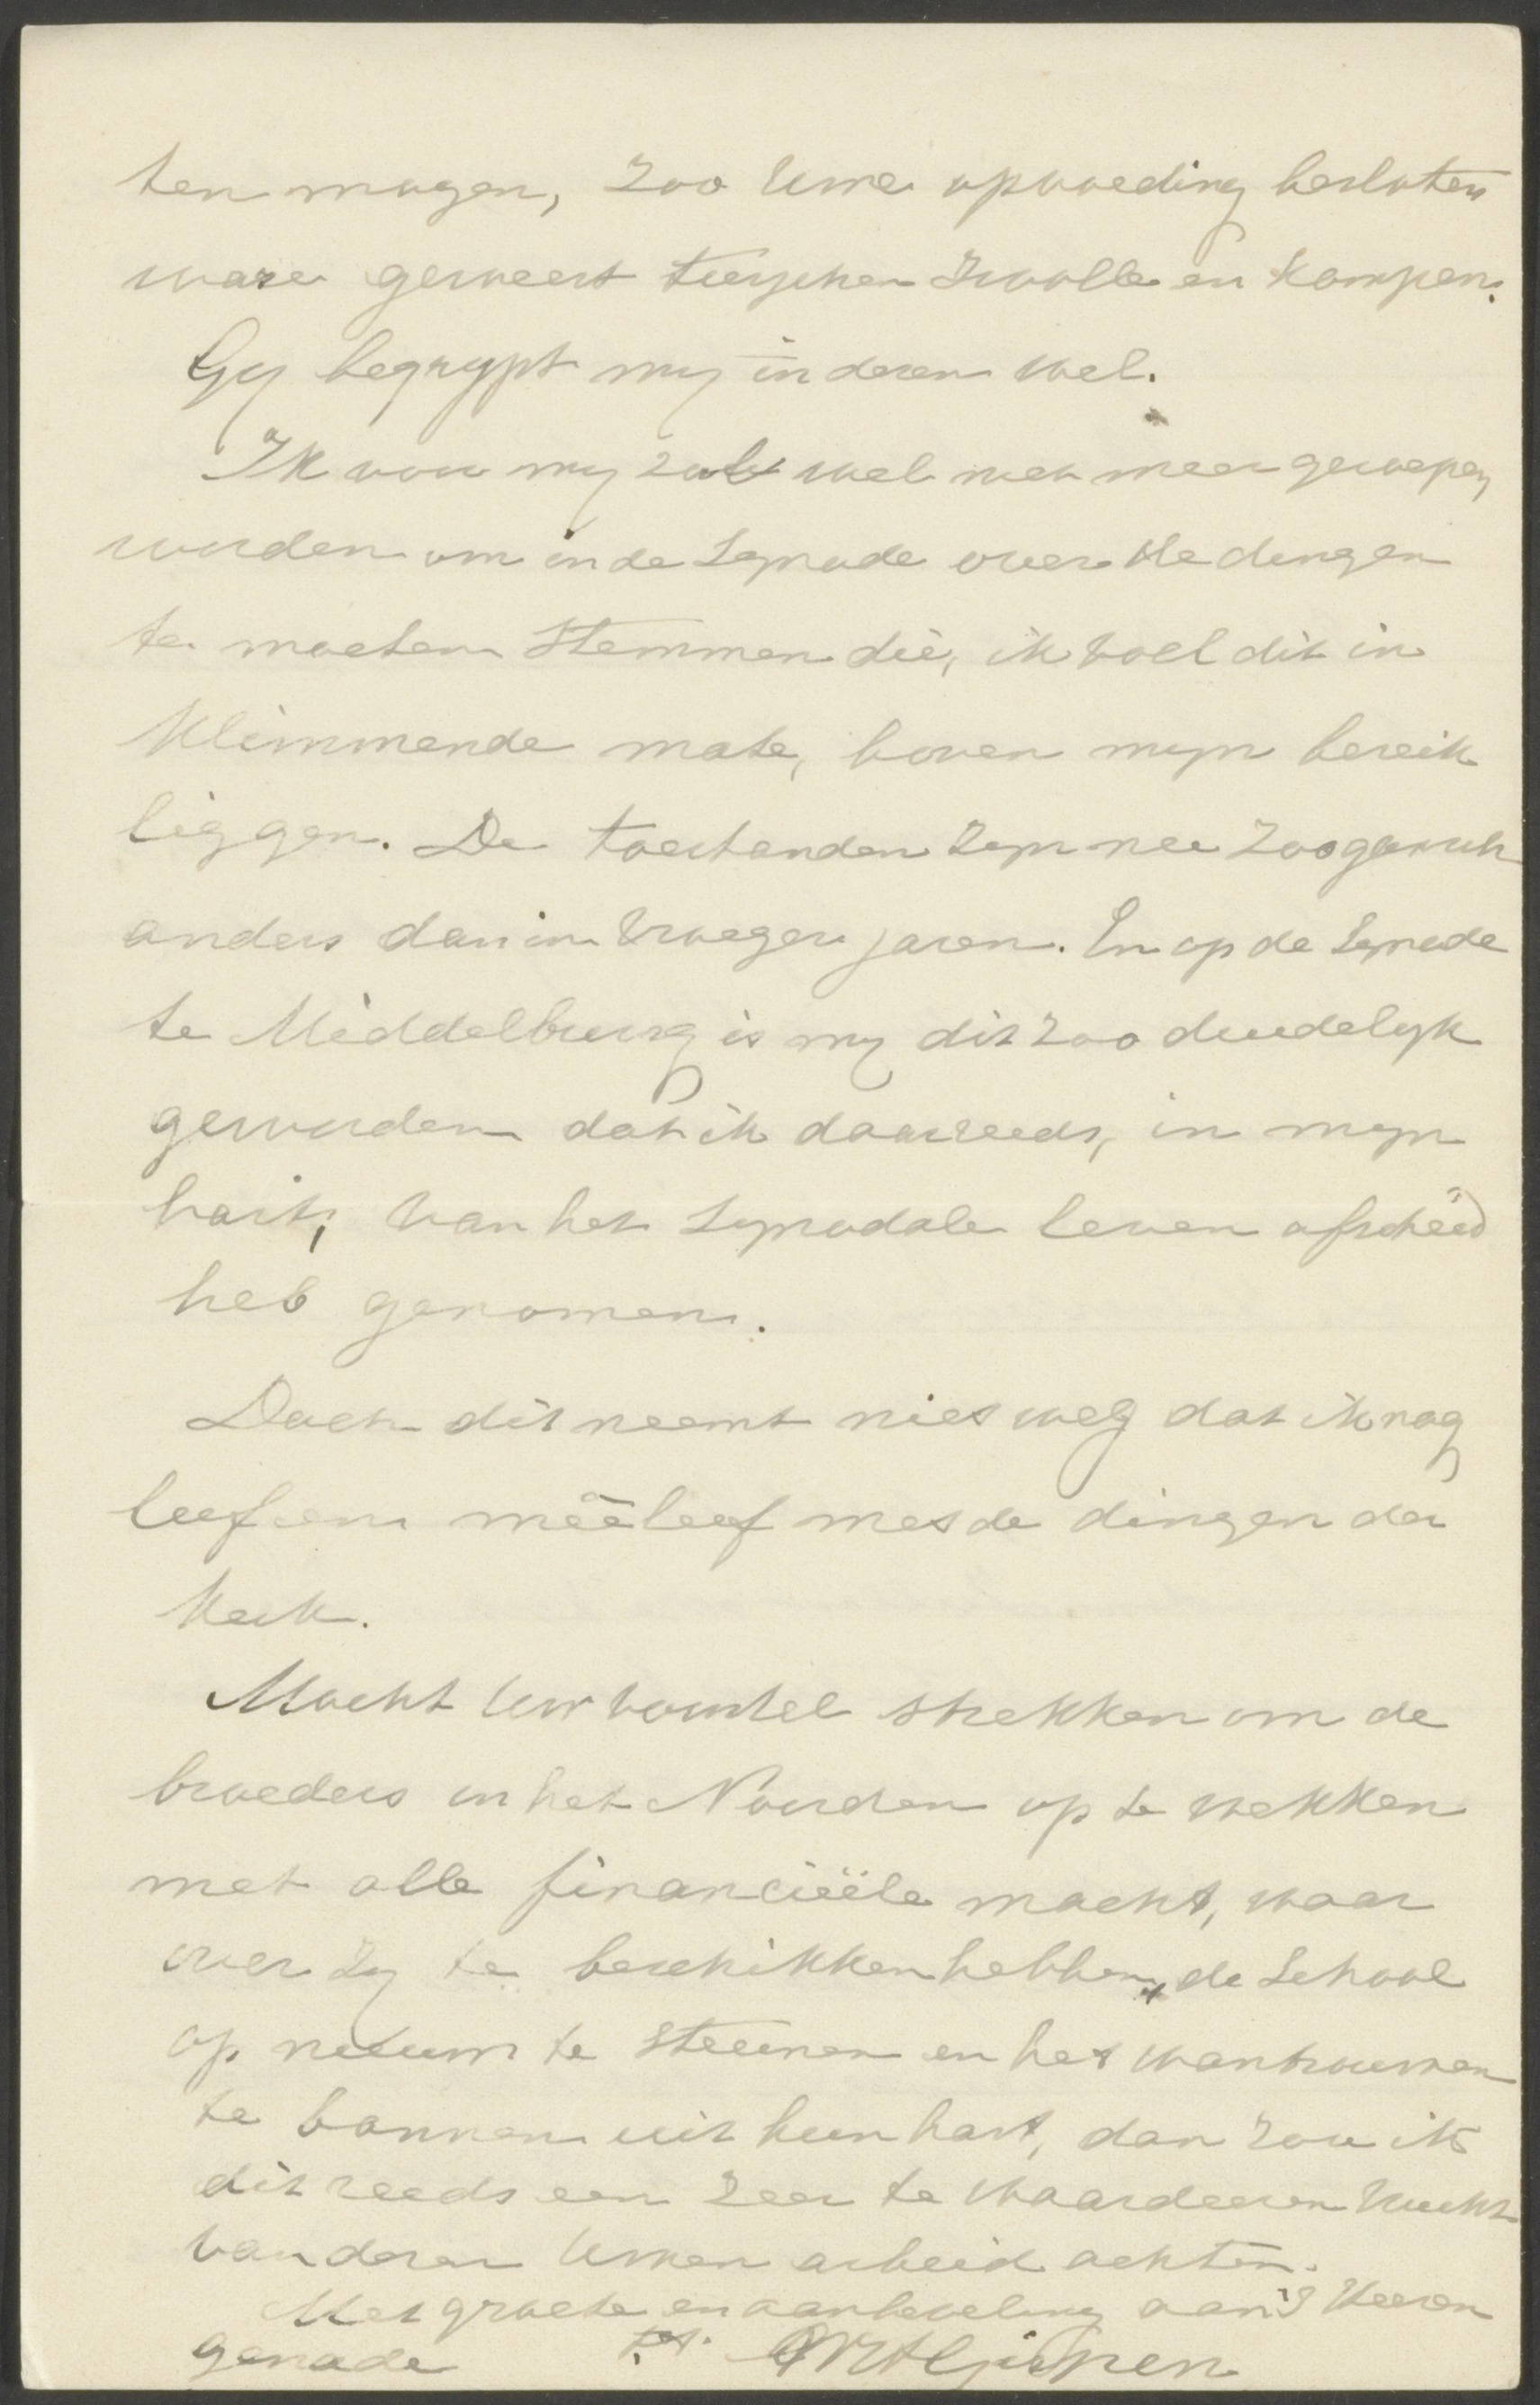 ten mogen, zoo Uwe opvoeding besloten
ware geweest tusschen Zwolle en Kampen.
Gy begrypt my in dezen wel.
Ik voor my zal wel niet meer geroepen
worden om in de Synode over die dingen
te moeten stemmen die, ik voel dit in
klimmende mate, boven myn bereik
liggen. De toestanden zyn nu zoo
anders dan in vroeger jaren. En op de Synode
te Middelburg is my dit zoo duidelyk
geworden dat ik daar reeds, in myn
hart, van het Synodale leven afscheid
heb genomen.
Doch dit neemt niet weg dat ik nog
leef en meêleef met de dingen der
Kerk.
Mocht Uw voorstel strekken om de
broeders in het Noorden op te wekken
met alle financiëele macht, waar
over zy te beschikken hebben, de School
op nieuw te steunen en het wantrouwen
te bannen uit hun hart, dan zou ik
dit reeds een zeer te waardeeren vrucht
van dezen Uwen arbeid achten.
Met groete en aanbeveling aan 's Heeren
genade